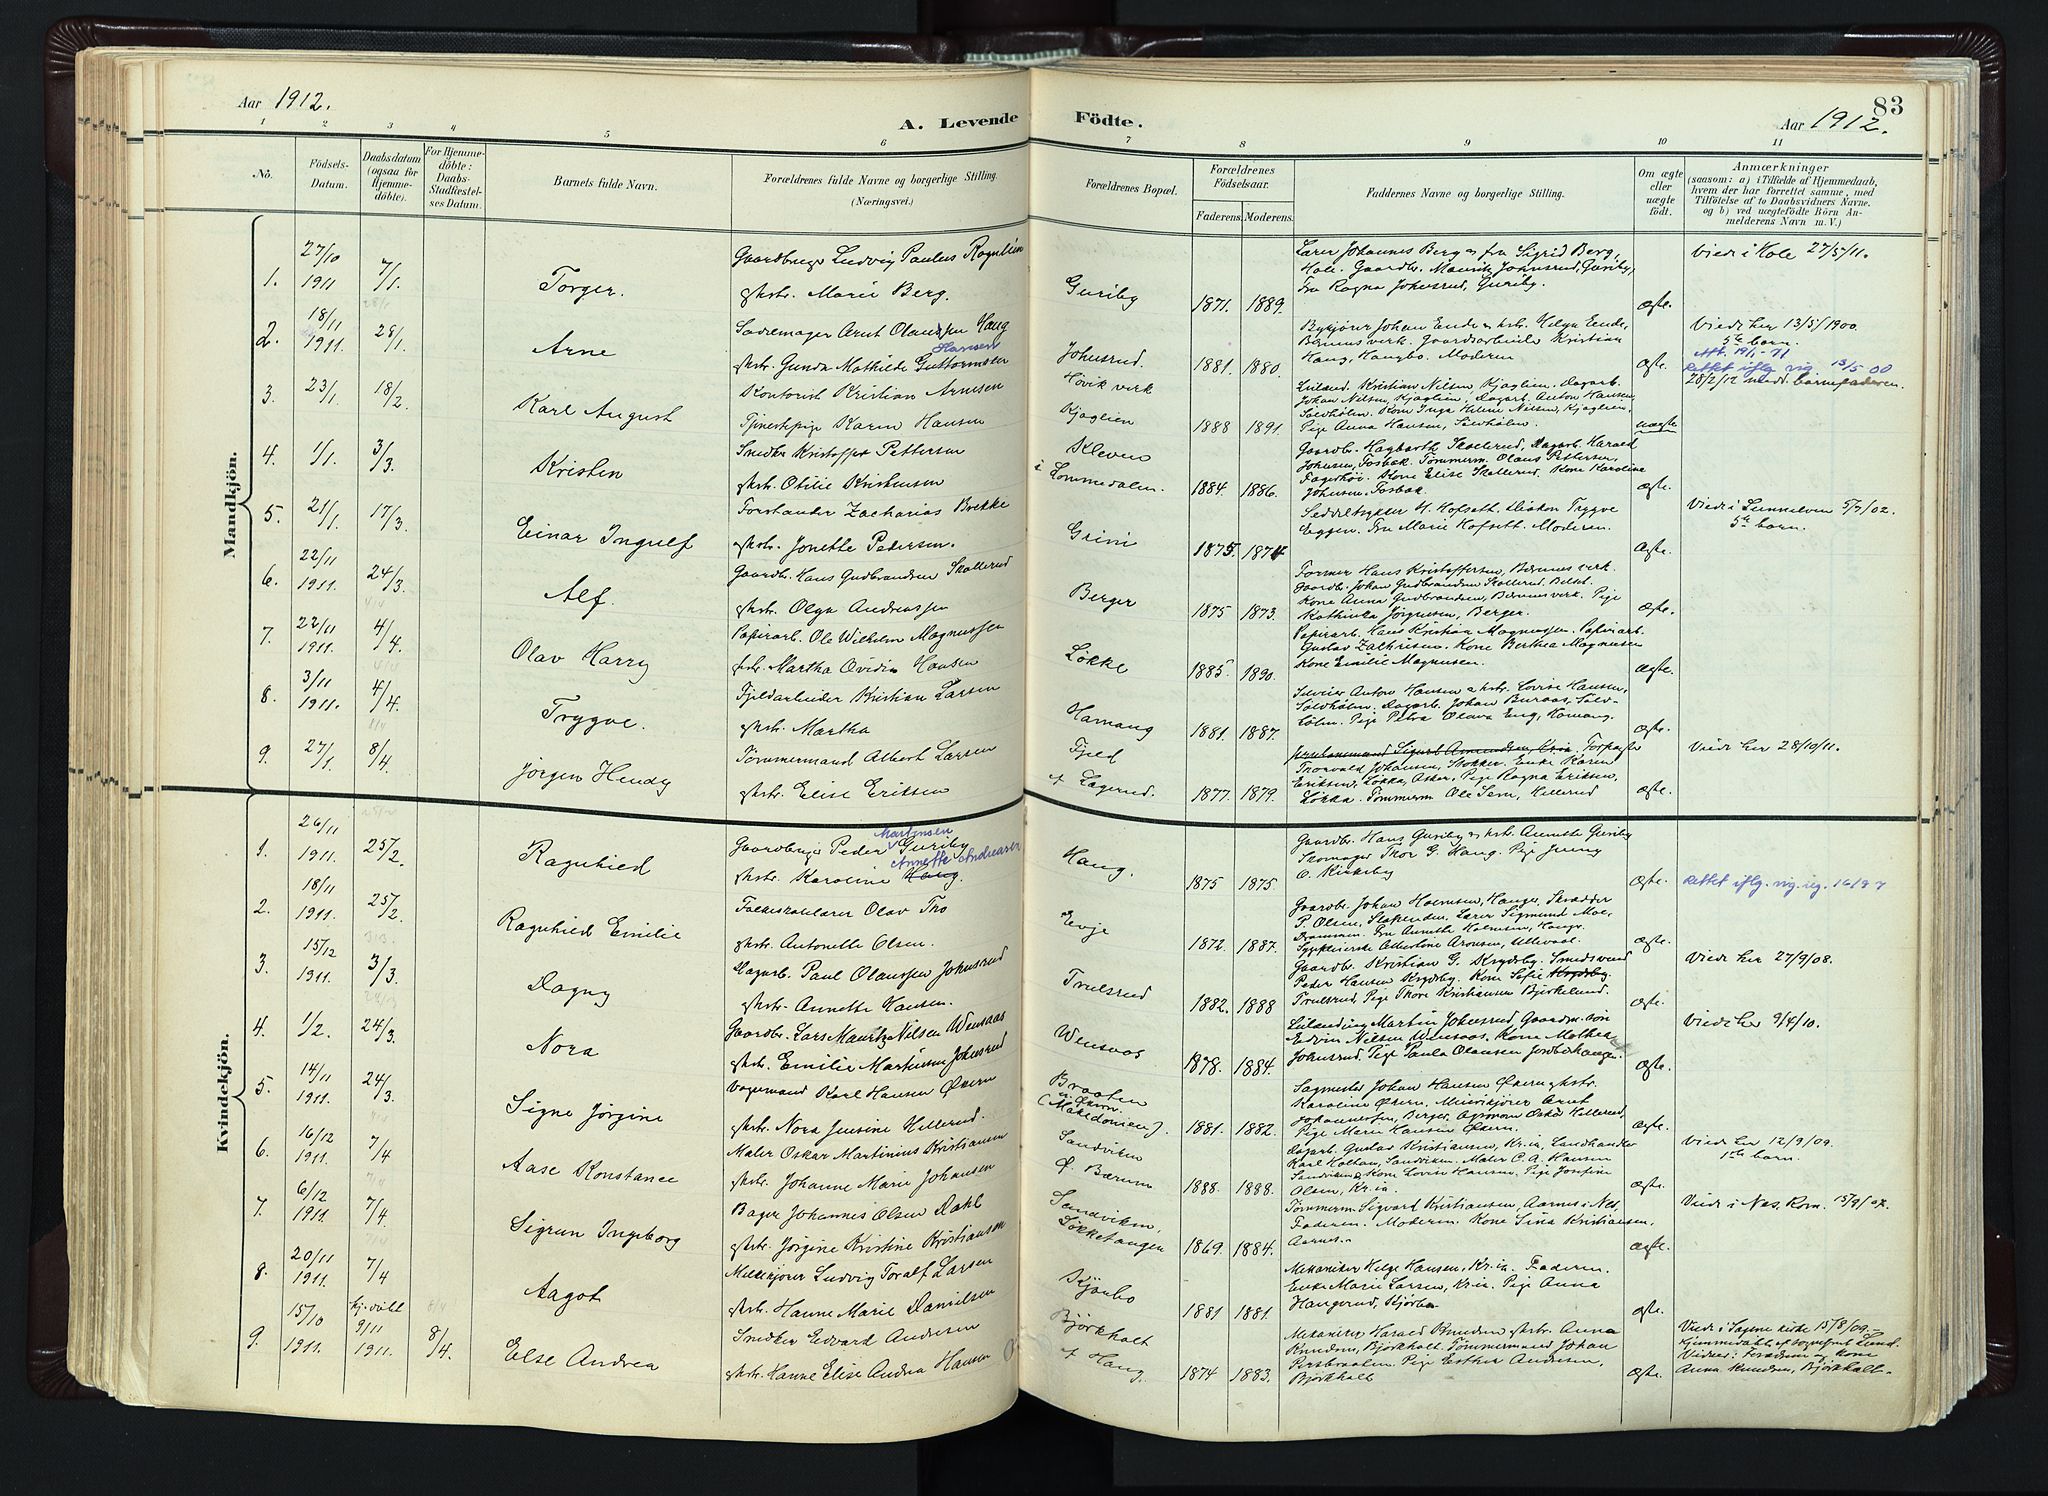 Aar 1912.
A. Levende Födte.
83
Aar 1912.
1 2 3 4 5 6 7 8 9 10 11
No.
Födsels-Datum.
Daabsdatum (ogsaa for Hjemme-döbte).
For Hjemme-döbte: Daabs-Stadfæstel-ses Datum.
Barnets fulde Navn.
Forældrenes fulde Navne og borgerlige Stilling. (Næringsvei.)
Forældrenes Bopæl.
Forældrenes Födselsaar.
Faderens. Moderens.
Faddernes Navne og borgerlige Stilling.
Om ægte eller uægte födt.
Anmærkninger
(saasom: a) i Tilfælde af Hjemmedaab, hvem der har forrettet samme, med Tilföielse af to Daabsvidners Navne. og b) ved uægtefödte Börn An-melderens Navn m. V.)
Mandkjön.
1. 27/10 1911 7/1. Torger.
Gaardbruger Ludvig Paulus
Hstr. Marie Berg.
Guriby 1871. 1889.
Lærer Johannes Berg og fru Sigrid Berg,
Hole. Gaardb. Mauritz Johnsrud, Guriby,
Fru Ragna Johnsrud, Guriby.
ægte.
Viede i Hole 27/5/11.
2. 18/11 1911. 28/1. Arne
Sadelmager Arnt Olaussen Haug
Hansen
Hstr. Gunda Mathilde Guttormsen
Johnsrud 1881. 1880.
Bykjører Johan Ende og Hstr. Helga Ende,
Bærums verk. Gaardsarbeider Kristian
Haug, Haugbo. Moderen
ægte.
Viede her 13/5/1900.
5te barn.
Rettet iflg. vig. 13/5 00
3. 23/1. 18/2. Karl August
Kontorist Kristian Arnesen
Tjenestepige Karen Hansen
Høvik verk
Kjaglien 1888 1891.
Kristian Nilsen, Kjaglien. Dagarb.
Johan Nilsen, Kjaglien, Dagarb. Anton Hansen,
Sølvhølen. Kone Inga Helene Nilsen, Kjaglien,
Pige Anna Hansen, Sølvhølen.
uægte
28/2/12 medd. barnefaderen.
4. 1/1. 3/3. Kristen
Snedker Kristoffer Pettersen
Hstr. Otilie Kristensen
Kleven
i Lommedalen. 1884. 1886.
Gaardb. Hagbarth Skollerud, Dagarb. Harald
Johnsen, Fosbak. Tømmerm. Olaus Pettersen,
Kone Elise Skollerud. Kone Karoline
Johnsen, Fosbak.
ægte.
5. 21/1. 17/3. Einar Ingulf
Forstander Zacharias Brekke
Hstr. Jonette Pedersen.
Grini 1875. 1874
H. Hofseth. Diakon Trygve
Eggen. Fru Marie Hofsett. Moderen.
ægte.
Viede i Sunnelven 5/7/02.
5te barn.
6. 22/11 1911. 24/3. Alf.
Gaardbr. Hans Gudbrandsen Skollerud
Hstr. Olga Andreassen
Berger 1875 1873.
Former Hans Kristoffersen, Bærums verk.
Gaardb. Johan Gudbrandsen Skollerud,
Kone Anna Gudbrandsen, Bærums verk. Pige
Kathinka Jørgensen, Berger.
ægte.
7. 22/11 1911. 4/4. Olav Harry
Papirarb. Ole Wilhelm Magnussen
Hstr. Martha Ovidia Hansen
Løkke 1885. 1890.
Papirarb. Hans Kristian Magnussen. Papirarb.
Gustav Zakrisen. Kone Berthea Magnussen
Kone Emilie Magnussen.
ægte.
8. 3/11 1911. 4/4. Trygve.
Fjeldarbeider Kristian Larsen
Hstr. Martha
Hamang 1881. 1887.
Anton Hansen og Hstr. Lovise Hansen,
Sølvhølen. Dagarb. Johan Buraas, Sølv-
hølen. Pige Petra Olava Eng, Hamang.
ægte.
9. 27/1. 8/4. Jörgen Hendy
Tømmermand Albert Larsen
Hstr. Elise Eriksen
Fjeld
Lagerud. 1877. 1879.
Sigurd Amundsen,
Thorvald Johansen, Stokker. Enke Karen
Eriksen, Løkka, Asker, Pige Ragna Eriksen,
Løkka. Tømmerm Ole Sem, Hellerud
ægte.
Viede her 28/10/11.
Kvindekjön.
1. 26/11 1911. 25/2. Ragnhild
Martinsen
Gaardbruger Peder Guriby
Annette Andreasen
Hstr. Karoline Haug.
Haug. 1875 1875.
Gaardbr. Hans Guriby og Hstr. Annette Guriby
Skomager Thor G. Haug. Pige Jenny
O. Kirkeby
ægte.
Rettet iflg. vig. reg.
2. 18/11 1911. 25/2. Ragnhild Emilie
Folkeskolelærer Olav Tho
Hstr. Antonette Olsen.
Evje 1872. 1887.
Gaardbr. Johan Holmsen, Hauger, Skrædder
P. Olsen, Slependen, Lærer Sigmund Moe,
Fru Annette Holmsen, Hauger.
Sygepleierske Albertine Aronsen, Ullevaal.
ægte.
3. 15/12 1911. 3/3. Dagny
Dagarb. Paul Olaussen Johnsrud
Hstr. Annette Hansen.
Trulsrud 1882. 1888
Gaardb. Kristian G. Krydsby.
Peder Hansen Krydsby. Kone Sofie Krydsby.
Trulsrud, Pige Thora Kristiansen Bjerkelund.
ægte.
Viede her 27/9/08.
4. 1/2. 24/3. Nora
Gaardbr. Lars Mauritz Nilsen Wensaas
Hstr. Emilie Martinsen Johnsrud
Wensaas 1878. 1884.
Martin Johnsrud, Gaardm. søn
Edvin Nilsen Wensaas, Kone Mathea
Johnsrud. Pige Paula Olausen
ægte.
Viede her 9/4/10.
5. 14/11 1911. 24/3. Signe Jørgine
Vognmand Karl Hansen Økern
Hstr. Nora Jensine Hellerud.
Braaten
u. Økern.
(Makedonien). 1881. 1882.
Sagmester Johan Hansen Økern og Hstr.
Karoline Økern. Arnt
Johannessen, Berger. Agronom Oskar Hellerud,
Pige Marie Hansen Økern.
ægte.
6. 16/12 1911. 7/4 Aase Konstance
Maler Oskar Martinius Kristiansen
Hstr. Johanne Marie Johansen
Sandviken
Ø. Bærum 1888. 1888.
Dagarb. Gustav Kristiansen, Kr.ia. Landhandler
Karl Holtan, Sandviken. Maler C. A. Hansen
Sandviken, Kone Lovise Hansen. Pige Josefine
Olsen, Kr.ia.
ægte.
Viede her 12/9/09.
1ste barn.
7. 6/12 1911. 7/4. Sigrun Ingeborg
Bager Johannes Olsen Dahl
Hstr. Jørgine Kristine Kristiansen
Sandviken,
Løkketangen 1869. 1884.
Tømmerm. Sigvard Kristiansen, Aarnes i Nes,
Faderen. Moderen. Kone Lina Kristiansen,
Aarnes.
ægte.
Viede i Nes, Rom. 15/9/07.
8. 20/11 1911. 7/4 Aagot
Melkekjører Ludvig Toralf Larsen
Hstr. Hanne Marie Danielsen
Kjørbo 1881 1881.
Mekaniker Helge Hansen, Kr.ia. Faderen.
Enke Marie Larsen, Kr.ia. Pige Anna
Haugerud, Kjørbo
ægte.
9. 15/10 1911. hj. døbt 9/11 1911. 8/4. Else Andrea
Snedker Edvard Andersen
Hstr. Hanne Elise Andrea Hansen
Bjørkholt
Haug. 1874 1883.
Mekaniker Harald Knudsen og Hstr. Anna
Knudsen, Bjørkholt. Tømmermand Johan
Persbraaten. Pige Esther Andersen,
Bjørkholt
ægte.
Viede i Sagene kirke 15/8/09.-
Hjemmedøbt af sognepræst Lund.
Vidner: Forældrene og kone
Anna Knudsen, Bjørkholt-